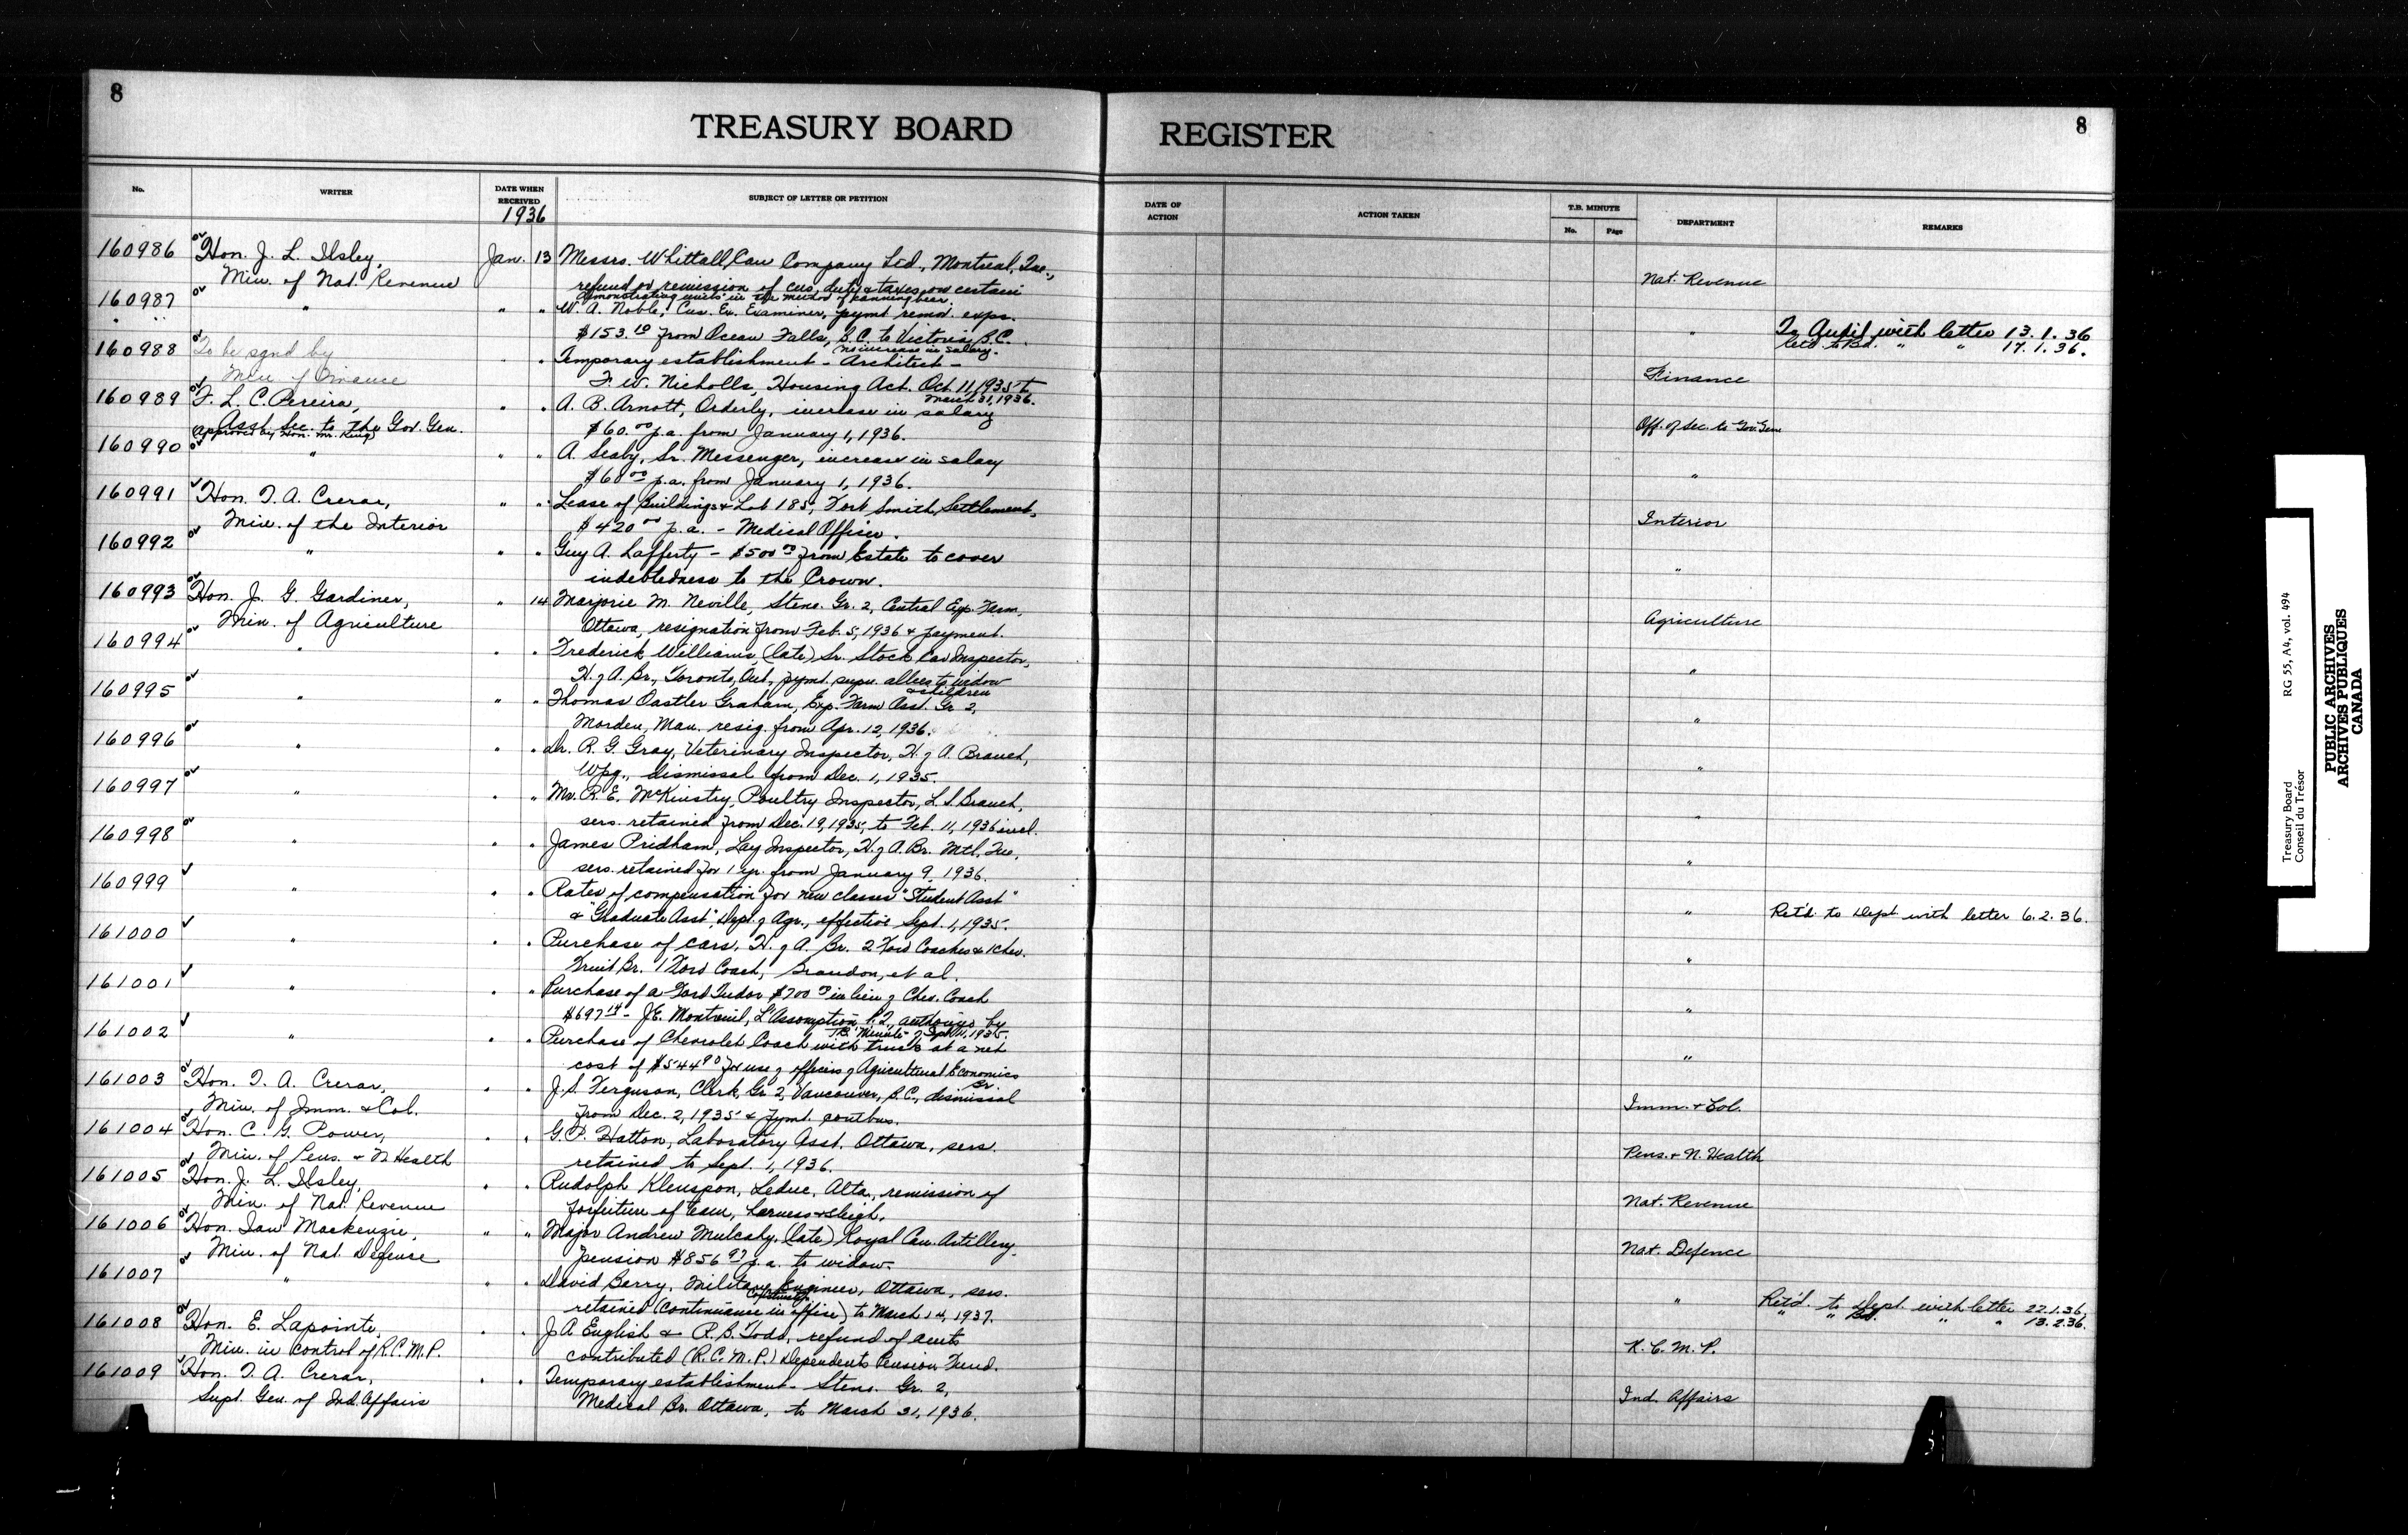 8
TREASURY BOARD REGISTER
8
No.
WRITER
DATE WHEN RECEIVED
1936
SUBJECT OF LETTER OR PETITION
DATE OF ACTION
ACTION TAKEN
T.B. MINUTE
No.
Page
DEPARTMENT
REMARKS
160986 Hon. J. L. Ilsley, Jan. 13 Messrs. Whittall Can Company Ltd., Montreal, Que.,
Min. of Nat. Revenue refund or remission of cus. duty & taxes on certain Nat. Revenue
demonstrating units in the method of canning beer.
160987 " " " W. A. Noble, Cus. Ex. Examiner, pymt. remov. exps.
$153.10 from Ocean Falls, B.C. to Victoria, B.C. " To Audit with letter 13.1.36
no increase in salary. Retd to Bd. " " 17.1.36.
160988 To be sgnd by " " Temporary establishment - Architect -
Min of Finance F. W. Nicholls, Housing Act. Oct. 11, 1935 to Finance
March 31, 1936.
160989 F. L. C. Pereira, " " A. B. Arnott, Orderly, increase in salary
Asst. Sec. to the Gov. Gen. $60.00 p.a. from January 1, 1936. Off. of Sec. to Gov. Gen
(Approved by Hon. Mr. King)
160990 " " " A. Seaby, Sr. Messenger, increase in salary
$60.00 p.a. from January 1, 1936. "
160991 Hon. T. A. Crerar, " " Lease of Buildings & Lot 185, Fort Smith, Settlement,
Min. of the Interior $420.00 p.a. - Medical Officer. Interior
160992 " " " Guy A. Lafferty - $500.00 from Estate to cover
indebtedness to the Crown. "
160993 Hon. J. G. Gardiner, " 14 Marjorie M. Neville, Steno. Gr. 2, Central Exp. Farm,
Min. of Agriculture Ottawa, resignation from Feb. 5, 1936 & payment. Agriculture
160994 " " " Frederick Williams, (late) Sr. Stock Car Inspector,
H. of A. Br., Toronto, Ont., pymt. supn. allces to widow "
& children
160995 " " " Thomas Oastler Graham, Exp. Farm Asst. Gr 2,
Morden, Man. resig. from Apr. 12, 1936. "
160996 " " " Dr. R. G. Gray, Veterinary Inspector, H. of A. Branch,
Wpg., dismissal from Dec. 1, 1935. "
160997 " " " Mr. R. E. McKinstry, Poultry Inspector, L. S. Branch,
sers. retained from Dec. 19, 1935, to Feb. 11, 1936 incl. "
160998 " " " James Pridham, Lay Inspector, H. of A. Br. Mtl, Que,
sers. retained for 1 yr. from January 9, 1936. "
160999 " " " Rates of compensation for new classes "Student Asst"
& "Graduate Asst", Dept. of Agr., effective Sept. 1, 1935. " Ret'd. to Dept with letter 6.2.36.
161000 " " " Purchase of cars, H. of A. Br. 2 Ford Coaches & 1 Chev.
Fruit Br. 1 Ford Coach, Brandon, et al. "
161001 " " " Purchase of a Ford Tudor $700.00 in lieu of Chev. Coach
$697.14 - J.E. Montreuil, L'Assomption, P.Q., authorized by "
T.B. Minute of Sept. 11, 1935.
161002 " " " Purchase of Chevrolet Coach with trunk at a net
cost of $544.90 for use of officers of Agricultural Economics "
Br.
161003 Hon. T. A. Crerar, " " J. S. Ferguson, Clerk, Gr 2, Vancouver, B.C., dismissal
Min. of Imm. & Col. from Dec. 2, 1935 & pymt. contbns. Imm. & Col.
161004 Hon. C. G. Power, " " G. P. Hatton, Laboratory Asst. Ottawa, sers.
Min. of Pens. & N Health retained to Sept. 1, 1936. Pens. & N. Health
161005 Hon. J. L. Ilsley, " " Rudolph Kleuspon, Leduc, Alta., remission of
Min. of Nat. Revenue forfeiture of team, harness & sleigh. Nat. Revenue
161006 Hon. Ian Mackenzie, " " Major Andrew Mulcahy, (late) Royal Can. Artillery,
Min. of Nat. Defense pension $856.97 p.a. to widow. Nat. Defence
161007 " " " David Berry, Military Engineer, Ottawa, sers.
retained (continuance in office) to March 14, 1937. " Ret'd. to Dept. with letter 22.1.36.
" " Bd. " " 13.2.36.
161008 Hon. E. Lapointe, " " J A English & R. B. Todd, refund of amts
Min. in control of R.C.M.P. contributed (R.C.M.P.) Dependents Pension Fund. R. C. M. P.
161009 Hon. T. A. Crerar, " " Temporary establishment - Steno. Gr. 2,
Supt. Gen. of Ind. Affairs Medical Br. Ottawa, to March 31, 1936. Ind. Affairs
Treasury Board RG 55, A4, vol. 494
Conseil du Trésor
PUBLIC ARCHIVES
ARCHIVES PUBLIQUES
CANADA